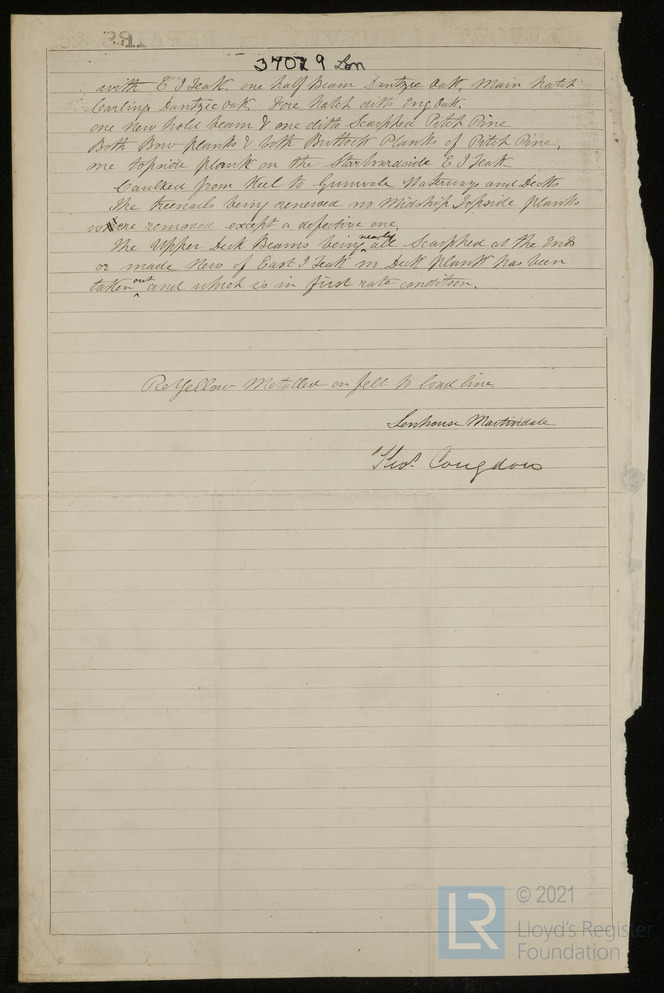 37029 Lon
with E I Teak. one half Beam Dantzic Oak, Main hatch
Carling Dantzic Oak. Fore hatch ditto Eng Oak.
one new hold beam & one ditto Scarphed Pitch Pine
Both Bow planks & both Buttock Planks of Pitch Pine,
one topside plank on the Starboardside E I Teak
Caulked from Keel to Gunwale Waterways and Decks
The treenails being renewed no Midship Topside planks
were removed except a defective one,
The Upper Deck Beams being nearly all Scarphed at the Ends
or made New of East I Teak no Deck plank has been
taken out and which is in first rate condition.
ReYellow Metalled on felt to load line
Senhouse Martindale
Thos. Congdon
© 2021
LR
Lloyd's Register
Foundation